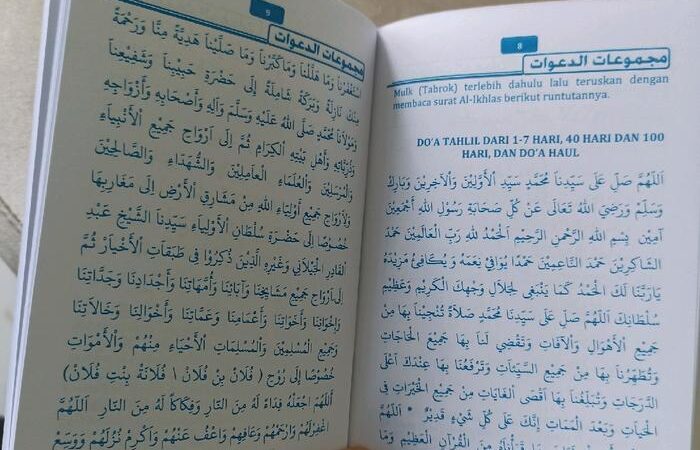 8
مجموعات الدعوات
Mulk (Tabrok) terlebih dahulu lalu teruskan dengan
membaca surat Al-Ikhlas berikut runtutannya.
DO'A TAHLIL DARI 1-7 HARI, 40 HARI DAN 100
HARI, DAN DO'A HAUL
اَللّٰهُمَّ صَلِّ عَلَى سَيِّدِنَا مُحَمَّدٍ سَيِّدِ اْلأَوَّلِيْنَ وَاْلآخِرِيْنَ وَبَارِكْ
وَسَلِّمْ وَرَضِيَ اللهُ تَعَالَى عَنْ كُلِّ صَحَابَةِ رَسُوْلِ اللهِ أَجْمَعِيْنَ
آمِيْن بِسْمِ اللهِ الرَّحْمٰنِ الرَّحِيْمِ اَلْحَمْدُ لِلّٰهِ رَبِّ الْعَالَمِيْنَ حَمْدَ
الشَّاكِرِيْنَ حَمْدَ النَّاعِمِيْنَ حَمْدًا يُوَافِيْ نِعَمَهُ وَيُكَافِئُ مَزِيْدَهُ
يَارَبَّنَا لَكَ الْحَمْدُ كَمَا يَنْبَغِي لِجَلَالِ وَجْهِكَ الْكَرِيْمِ وَعَظِيْمِ
سُلْطَانِكَ اَللّٰهُمَّ صَلِّ عَلَى سَيِّدِنَا مُحَمَّدٍ صَلاَةً تُنْجِيْنَا بِهَا مِنْ
جَمِيْعِ اْلأَهْوَالِ وَاْلآفَاتِ وَتَقْضِي لَنَا بِهَا جَمِيْعَ الْحَاجَاتِ
وَتُطَهِّرُنَا بِهَا مِنْ جَمِيْعِ السَّيِّئَاتِ وَتَرْفَعُنَا بِهَا عِنْدَكَ أَعْلَى
الدَّرَجَاتِ وَتُبَلِّغُنَا بِهَا أَقْصَى الْغَايَاتِ مِنْ جَمِيْعِ الْخَيْرَاتِ فِي
الْحَيَاتِ وَبَعْدَ الْمَمَاتِ إِنَّكَ عَلَى كُلِّ شَيْءٍ قَدِيْرٌ * اَللّٰهُمَّ
مَا قَرَأْنَاهُ مِنَ الْقُرْآنِ الْعَظِيْمِ وَمَا
9
مجموعات الدعوات
اسْتَغْفَرْنَا وَمَا هَلَّلْنَا وَمَاكَبَّرْنَا وَمَا صَلَّيْنَا هَدِيَّةً مِنَّا وَرَحْمَةً
مِنْكَ نَازِلَةً وَبَرَكَةً شَامِلَةً إِلَى حَضْرَةِ حَبِيْبِنَا وَشَفِيْعِنَا
وَمَوْلاَنَا مُحَمَّدٍ صَلَّى اللهُ عَلَيْهِ وَسَلَّمَ وَآلِهِ وَأَصْحَابِهِ وَأَزْوَاجِهِ
وَذُرِّيَّاتِهِ وَأَهْلِ بَيْتِهِ الْكِرَامِ ثُمَّ إِلَى أَرْوَاحِ جَمِيْعِ اْلأَنْبِيَاءِ
وَالْمُرْسَلِيْنَ وَالْعُلَمَاءِ الْعَامِلِيْنَ وَالشُّهَدَاءِ وَالصَّالِحِيْنَ
وَلِأَرْوَاحِ جَمِيْعِ أَوْلِيَاءِ اللهِ مِنْ مَشَارِقِ اْلأَرْضِ إِلَى مَغَارِبِهَا
خُصُوْصًا إِلَى حَضْرَةِ سُلْطَانِ اْلأَوْلِيَاءِ سَيِّدِنَا الشَّيْخِ عَبْدِ
الْقَادِرِ الْجَيْلَانِي وَغَيْرِهِ الَّذِيْنَ ذُكِرُوْا فِي طَبَقَاتِ اْلأَخْيَارِ ثُمَّ
إِلَى أَرْوَاحِ جَمِيْعِ مَشَايِخِنَا وَآبَائِنَا وَأُمَّهَاتِنَا وَأَجْدَادِنَا وَجَدَّاتِنَا
وَإِخْوَانِنَا وَأَخَوَاتِنَا وَأَعْمَامِنَا وَعَمَّاتِنَا وَأَخْوَالِنَا وَخَالاَتِنَا
وَجَمِيْعِ الْمُسْلِمِيْنَ وَالْمُسْلِمَاتِ اْلأَحْيَاءِ مِنْهُمْ وَاْلأَمْوَاتِ
خُصُوْصًا إِلَى رُوْحِ ( فُلاَنْ بِنْ فُلاَنْ \ فُلاَنَةْ بِنْتِ فُلاَنْ)
اَللّٰهُمَّ اجْعَلْهُ فِدَاءً لَهُ مِنَ النَّارِ وَفِكَاكًا لَهُ مِنَ النَّارِ اَللّٰهُمَّ
اغْفِرْلَهُمْ وَارْحَمْهُمْ وَعَافِهِمْ وَاعْفُ عَنْهُمْ وَأَكْرِمْ نُزُلَهُمْ وَوَسِّعْ